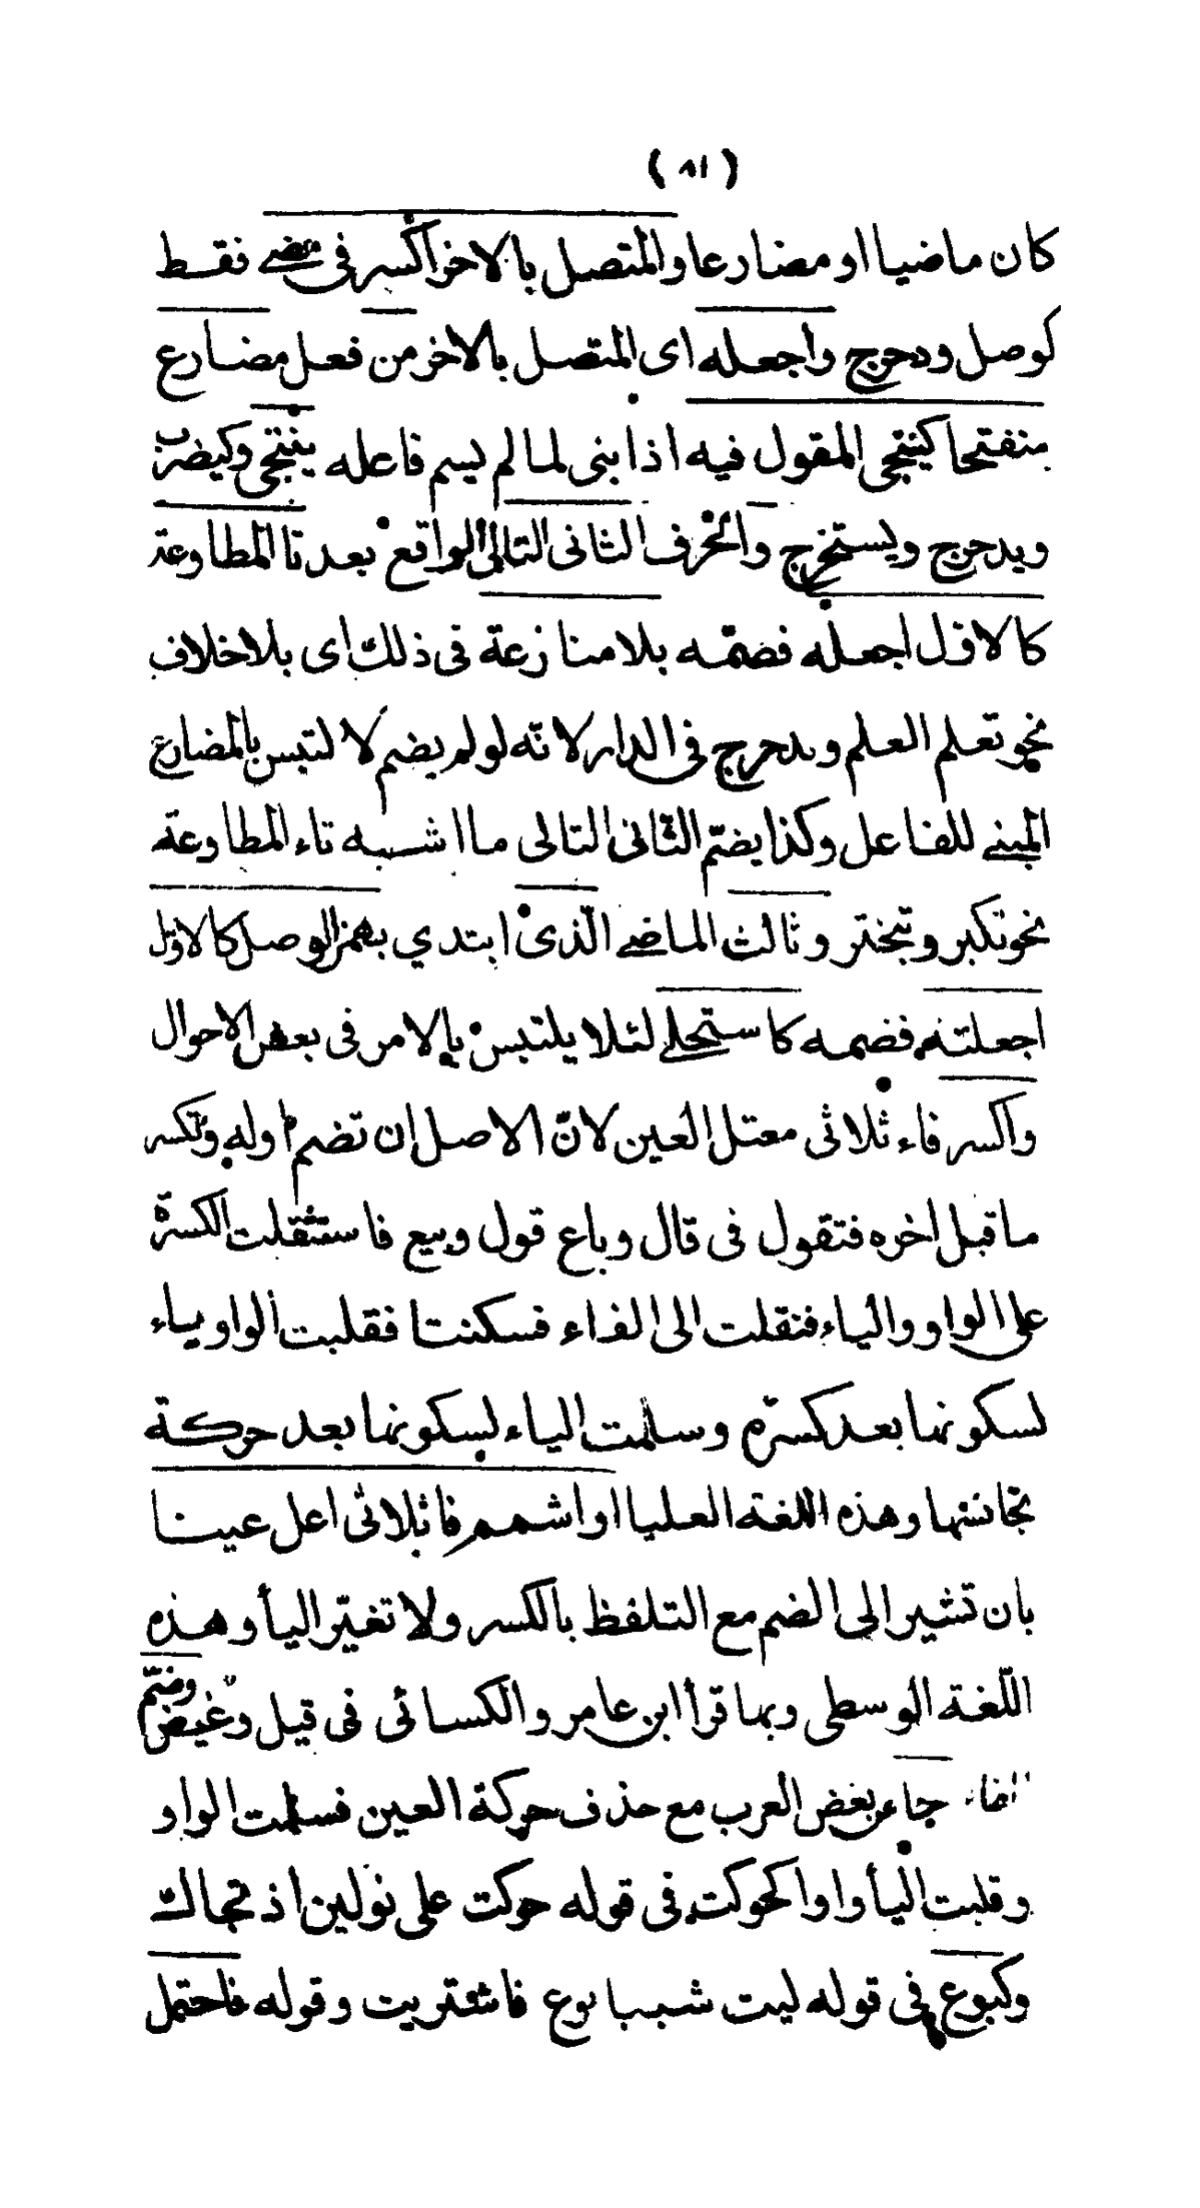 ( ٨١ )
كان ماضيا او مضارعا والمتصل بالاخر اكسر فى مضى فقط
كوصل ودحرج واجعله اى المتصل بالاخر من فعل مضارع
منفتحا كينتحى المقول فيه اذا بنى لما لم يسم فاعله ينتحى وكيضرب
ويدحرج ويستخرج والحرف الثانى التالى الواقع بعد تا المطاوعة
كالاول اجعله فضمّه بلا منازعة فى ذلك اى بلا خلاف
نحو تعلم العلم وتدحرج فى الدار لانّه لو لم يضم لالتبس بالمضارع
المبنے للفاعل وكذا يضمّ الثانى التالى ما اشبه تاء المطاوعة
نحو تكبر وتبختر وثالث الماضے الّذى ابتدي بهمز الوصل كالاوّل
اجعلنه فضمه كاستحلے لئلا يلتبس بالامر فى بعض الاحوال
واكسر فاء ثلاثى معتل العين لانّ الاصل ان تضم اوله وتكسر
ما قبل اخره فتقول فى قال وباع قول وبيع فاستثقلت الكسرة
على الواو والياء فنقلت الى الفاء فسكنتا فقلبت الواو ياء
لسكونها بعد كسرة وسلمت الياء لسكونها بعد حركة
تجانسها وهذه اللغة العليا او اشمم فا ثلاثى اعل عينا
بان تشير الى الضم مع التلفظ بالكسر ولا تغيّر اليأ وهذه
اللّغة الوسطى وبها قرأ ابن عامر والكسائى فى قيل وغيض وضمّ
الفاء جاء عن بعض العرب مع حذف حركة العين فسلمت الواو
وقلبت اليأ واوا كحوكت فى قوله حوكت على نولين اذ تحاك
وكبوع فى قوله ليت شبابا بوع فاشتريت وقوله فاحتمل